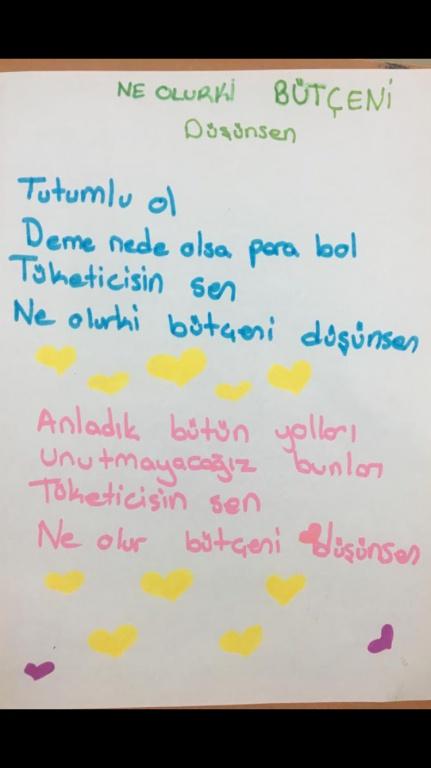 NE OLURKİ BÜTÇENİ
Düşünsen
Tutumlu ol
Deme nede olsa para bol
Tüketicisin sen
Ne olurki bütçeni düşünsen
Anladık bütün yolları
unutmayacağız bunları
Tüketicisin sen
Ne olur bütçeni düşünsen